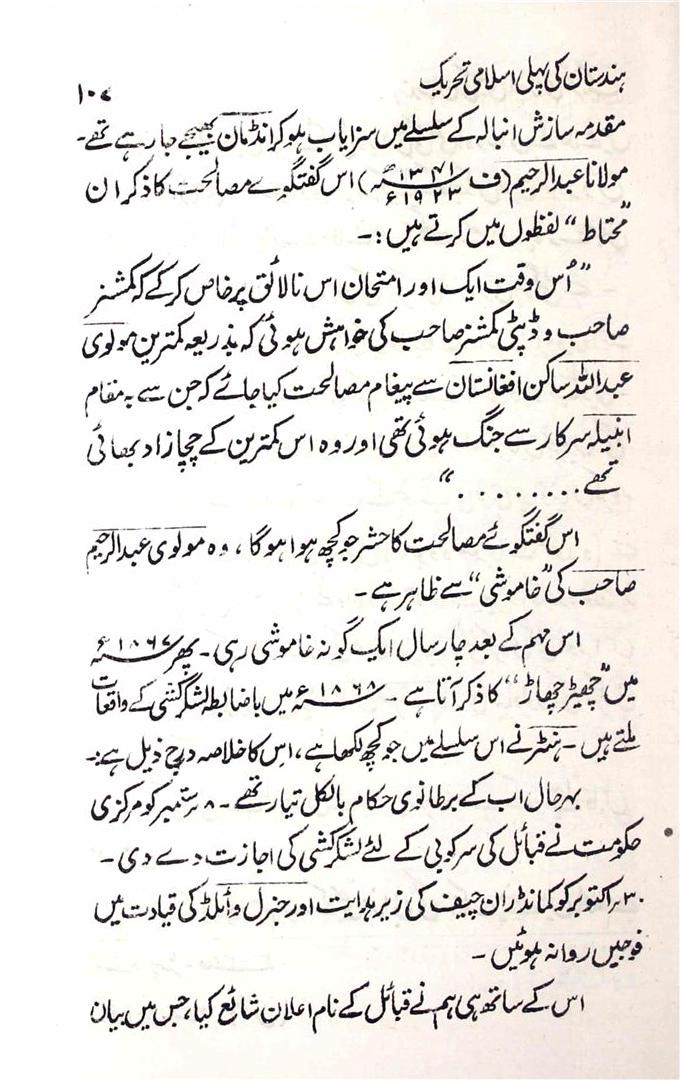 ہندستان کی پہلی اسلامی تحریک
۱۰۷
مقدمہ سازش انبالہ کے سلسلے میں سزایاب ہوکر انڈمان بھیجے جارہے تھے۔
مولانا عبدالرحیم (ف ۱۳۴۱ھ ۱۹۲۳ء) اس گفتگوے مصالحت کا ذکر ان
”محتاط“ لفظوں میں کرتے ہیں:۔
”اُس وقت ایک اور امتحان اس نالائق پر خاص کرکے کہ کمشنر
صاحب و ڈپٹی کمشنر صاحب کی خواہش ہوئی کہ بذریعہ کمترین مولوی
عبداللہ ساکن افغانستان سے پیغام مصالحت کیا جائے کہ جن سے بہ مقام
انبیلہ سرکار سے جنگ ہوئی تھی اور وہ اس کمترین کے چچازاد بھائی
تھے.........“
اس گفتگوئے مصالحت کا حشر جو کچھ ہوا ہوگا، وہ مولوی عبدالرحیم
صاحب کی ”خاموشی“ سے ظاہر ہے۔
اس مہم کے بعد چار سال ایک گونہ خاموشی رہی۔ پھر ۱۸۶۷ء
میں ”چھیڑ چھاڑ“ کا ذکر آتا ہے۔ ۱۸۶۸ء میں باضابطہ لشکرکشی کے واقعات
ملتے ہیں۔ ہنٹر نے اس سلسلے میں جو کچھ لکھا ہے، اس کا خلاصہ درج ذیل ہے:۔
بہرحال اب کے برطانوی حکام بالکل تیار تھے۔ ۸ ستمبر کو مرکزی
حکومت نے قبائل کی سرکوبی کے لئے لشکرکشی کی اجازت دے دی۔
۳۰ اکتوبر کو کمانڈر ان چیف کی زیر ہدایت اور جنرل وائلڈ کی قیادت میں
فوجیں روانہ ہوئیں۔
اس کے ساتھ ہی ہم نے قبائل کے نام اعلان شائع کیا، جس میں بیان